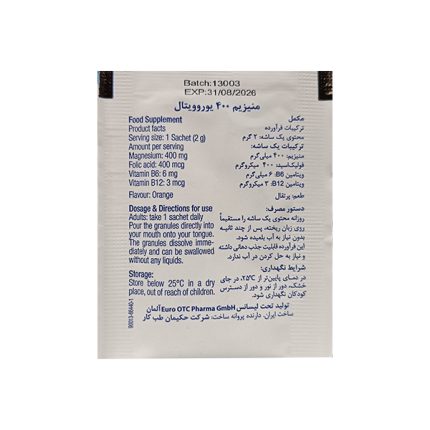 Batch:13003
EXP:31/08/2026
منیزیم ۴۰۰ یوروویتال
Food Supplement
Product facts
Serving size: 1 Sachet (2 g)
Amount per serving
Magnesium: 400 mg
Folic acid: 400 mcg
Vitamin B6: 6 mg
Vitamin B12: 3 mcg
Flavour: Orange
Dosage & Directions for use
Adults: take 1 sachet daily
Pour the granules directly into
your mouth onto your tongue.
The granules dissolve imme-
diately and can be swallowed
without any liquids.
Storage:
Store below 25°C in a dry
place, out of reach of children.
مکمل
ترکیبات فرآورده
محتوی یک ساشه: ۲ گرم
ترکیبات یک ساشه:
منیزیم: ۴۰۰ میلی‌گرم
فولیک‌اسید: ۴۰۰ میکروگرم
ویتامین B6: ۶ میلی‌گرم
ویتامین B12: ۳ میکروگرم
طعم: پرتقال
دستور مصرف:
روزانه محتوی یک ساشه را مستقیماً
روی زبان ریخته، پس از چند ثانیه
بدون نیاز به آب بلعیده شود.
این فرآورده قابلیت جذب دهانی داشته
و نیاز به حل کردن در آب ندارد.
شرایط نگهداری:
در دمای پایین‌تر از ۲۵°C، در جای
خشک، دور از نور و دور از دسترس
کودکان نگهداری شود.
تولید تحت لیسانس Euro OTC Pharma GmbH آلمان
ساخت ایران، دارنده پروانه ساخت: شرکت حکیمان طب کار